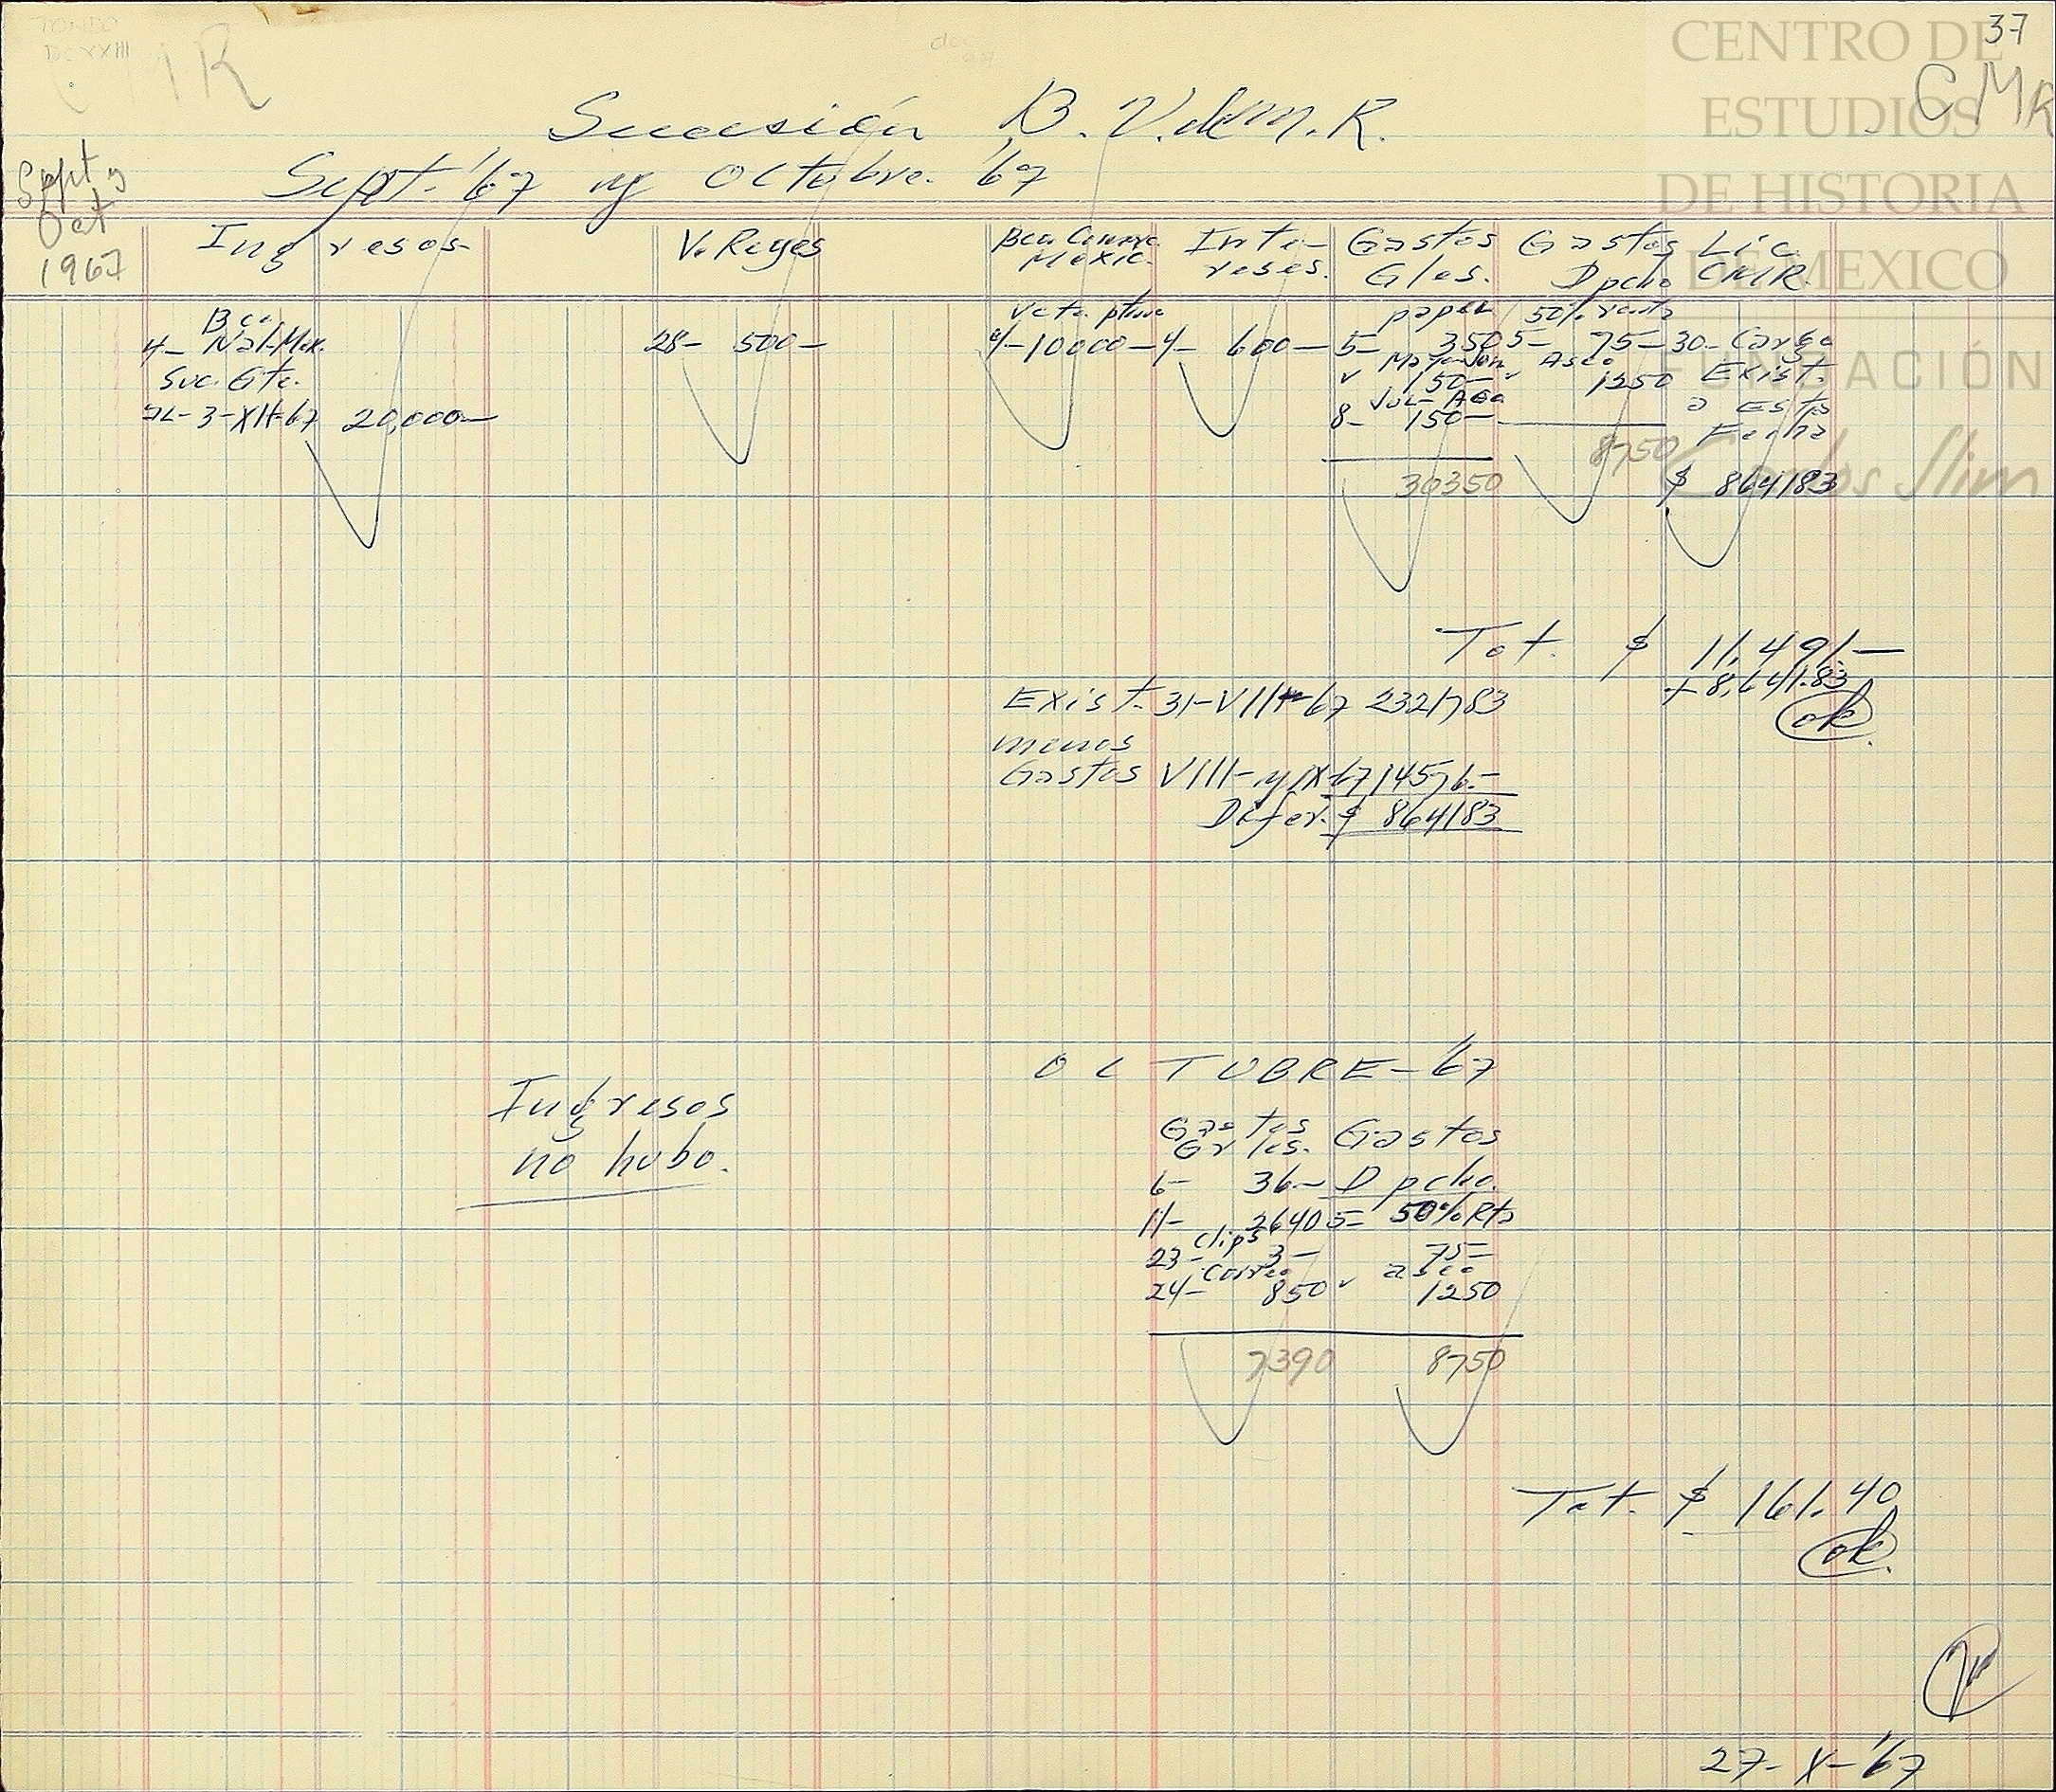 37
CMR
CMR
TOMO
DCXXIII
CENTRO DE
ESTUDIOS
DE HISTORIA
DE MEXICO
FUNDACIÓN
Carlos Slim
Sucesión B. V. de M. R.
Sept. '67 y Octubre. '67
Sept y
Oct
1967
Ingresos
V. Reyes
Bco. Comerc.
Mexic.
Inte-
reses.
Gastos
Gles.
Gastos
Dpcho
Lic.
CMR.
Bco.
4- Nal-Mex.
Suc. Gte.
3-XII-67 20,000-
28- 500-
Vcto. ptmo
4- 10000-
4- 600-
papel
5- 350
150-
Jul- Ago
8- 150-
30350
50% renta
5- 75-
Aseo
1250
8750
30- Cargo
Exist.
a Esta
Fecha
$ 864183
Tot. $ 11,491-
+ 8,641.83
ok
Exist. 31-VIII-67 2321783
menos
Gastos VIII- y IX-67 14576.-
Difer. $ 864183
OCTUBRE-'67
Ingresos
no hubo.
Gastos
Grles.
6- 36-
11- 2640
Clips
23- 3-
Correo
24- 850
7390
Gastos
Dpcho.
5- 50% Rta
75-
aseo
1250
8750
Tot. $ 161.40
ok
27-X-'67